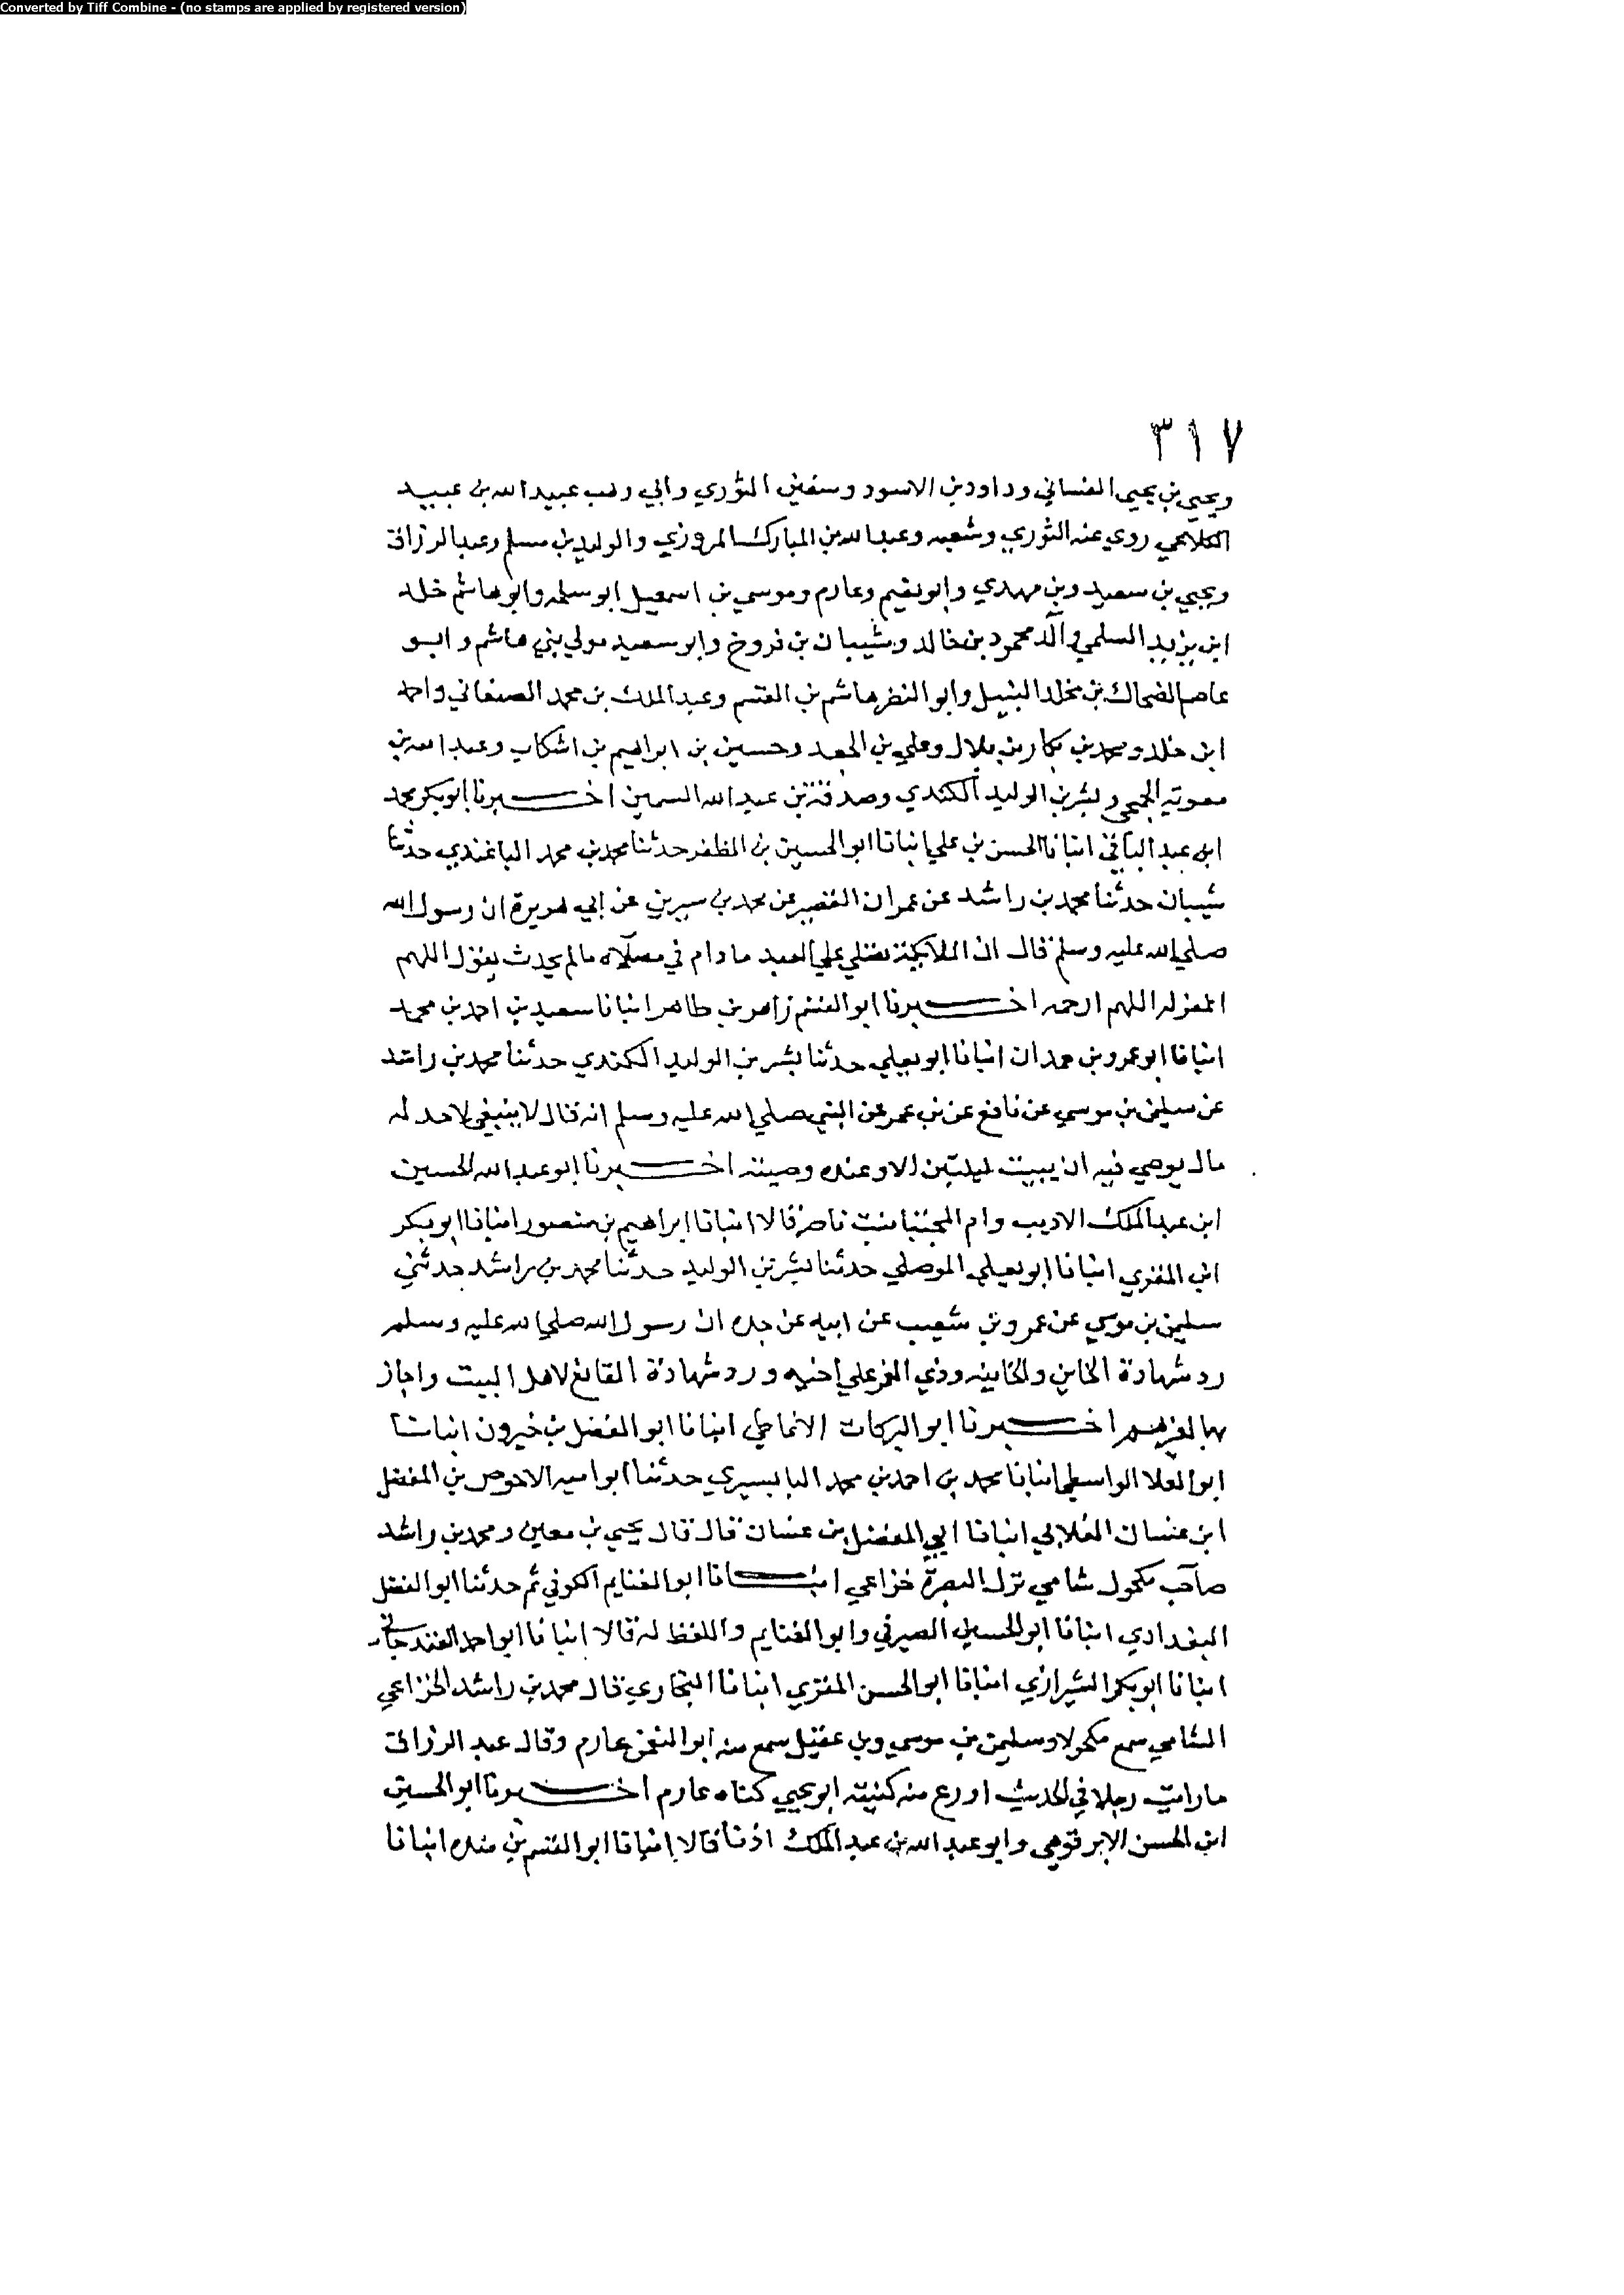 Converted by Tiff Combine - (no stamps are applied by registered version)
٣١٧
ويحيى بن يحيى الغساني وداود بن الاسود وسفين الثوري وابي وهب عبيد الله بن عبيد
الكلاعي روي عنه الثوري وشعبه وعبد الله بن المبارك المروزي والوليد بن مسلم وعبد الرزاق
ويحيي بن سعيد وبن مهدي وابو نعيم وعارم وموسي بن اسمعيل ابو سلمه وابو هاشم خلد
ابن يزيد السلمي والد محمود بن خالد وشيبان بن فروخ وابو سعيد مولي بني هاشم وابو
عاصم الضحاك بن مخلد النبيل وابو النضر هاشم بن القسم وعبد الملك بن محمد الصنعاني واحمد
ابن خلد ومحمد بن بكار بن بلال وعلي بن الجعد وحسين بن ابراهيم بن اشكاب وعبد الله بن
معويه الجمحي وبشر بن الوليد الكندي وصدقة بن عبد الله السمين اخبرنا ابو بكر محمد
ابن عبد الباقي انبانا الحسن بن علي انبانا ابو الحسين بن المظفر حدثنا محمد بن محمد الباغندي حدثنا
شيبان حدثنا محمد بن راشد عن عمران القصير عن محمد بن سيرين عن ابي هريرة ان رسول الله
صلي الله عليه وسلم قال ان الملائكة تصلي علي العبد ما دام في مصلاه ما لم يحدث يقول اللهم
اغفر له اللهم ارحمه اخبرنا ابو القسم زاهر بن طاهر انبانا سعيد بن احمد بن محمد
انبانا ابو عمرو بن حمدان انبانا ابو يعلي حدثنا بشر بن الوليد الكندي حدثنا محمد بن راشد
عن سليمن بن موسي عن نافع عن بن عمر عن النبي صلي الله عليه وسلم انه قال لا ينبغي لاحد له
مال يوصي فيه ان يبيت ليلتين الا وعنده وصيته اخبرنا ابو عبد الله الحسين
ابن عبد الملك الاديب وام المجتبا بنت ناصر قالا انبانا ابراهيم بن منصور انبانا ابو بكر
ابن المقري انبانا ابو يعلي الموصلي حدثنا بشر بن الوليد حدثنا محمد بن راشد حدثني
سليمن بن موسي عن عمرو بن شعيب عن ابيه عن جده ان رسول الله صلي الله عليه وسلم
رد شهادة الخاين والخاينه وذي الغمر علي اخيه ورد شهادة القانع لاهل البيت واجاز
بها لغيرهم اخبرنا ابو البركات الانماطي انبانا ابو الفضل بن خيرون انبانا
ابو العلا الواسطي انبانا محمد بن احمد بن محمد البابسيري حدثنا ابو اميه الاحوص بن المفضل
ابن غسان الغلابي انبانا ابي المفضل بن غسان قال قال يحيي بن معين ومحمد بن راشد
صاحب مكحول شامي نزل البصرة خزاعي انبانا ابو الغنايم الكوفي ثم حدثنا ابو الفضل
البغدادي انبانا ابو الحسين الصيرفي وابو الغنايم واللفظ له قالا انبانا ابو احمد
انبانا ابو بكر الشيرازي انبانا ابو الحسن المقري انبانا البخاري قال محمد بن راشد الخزاعي
الشامي سمع مكحولا وسليمن بن موسي وبن عقيل سمع منه ابو النعمن عارم وقال عبد الرزاق
ما رايت رجلا في الحديث اورع منه كنيته ابو يحيي كناه عارم اخبرنا ابو الحسين
ابن الحسن الابرقوهي وابو عبد الله بن عبد الملك اذنا قالا انبانا ابو القسم بن منده انبانا